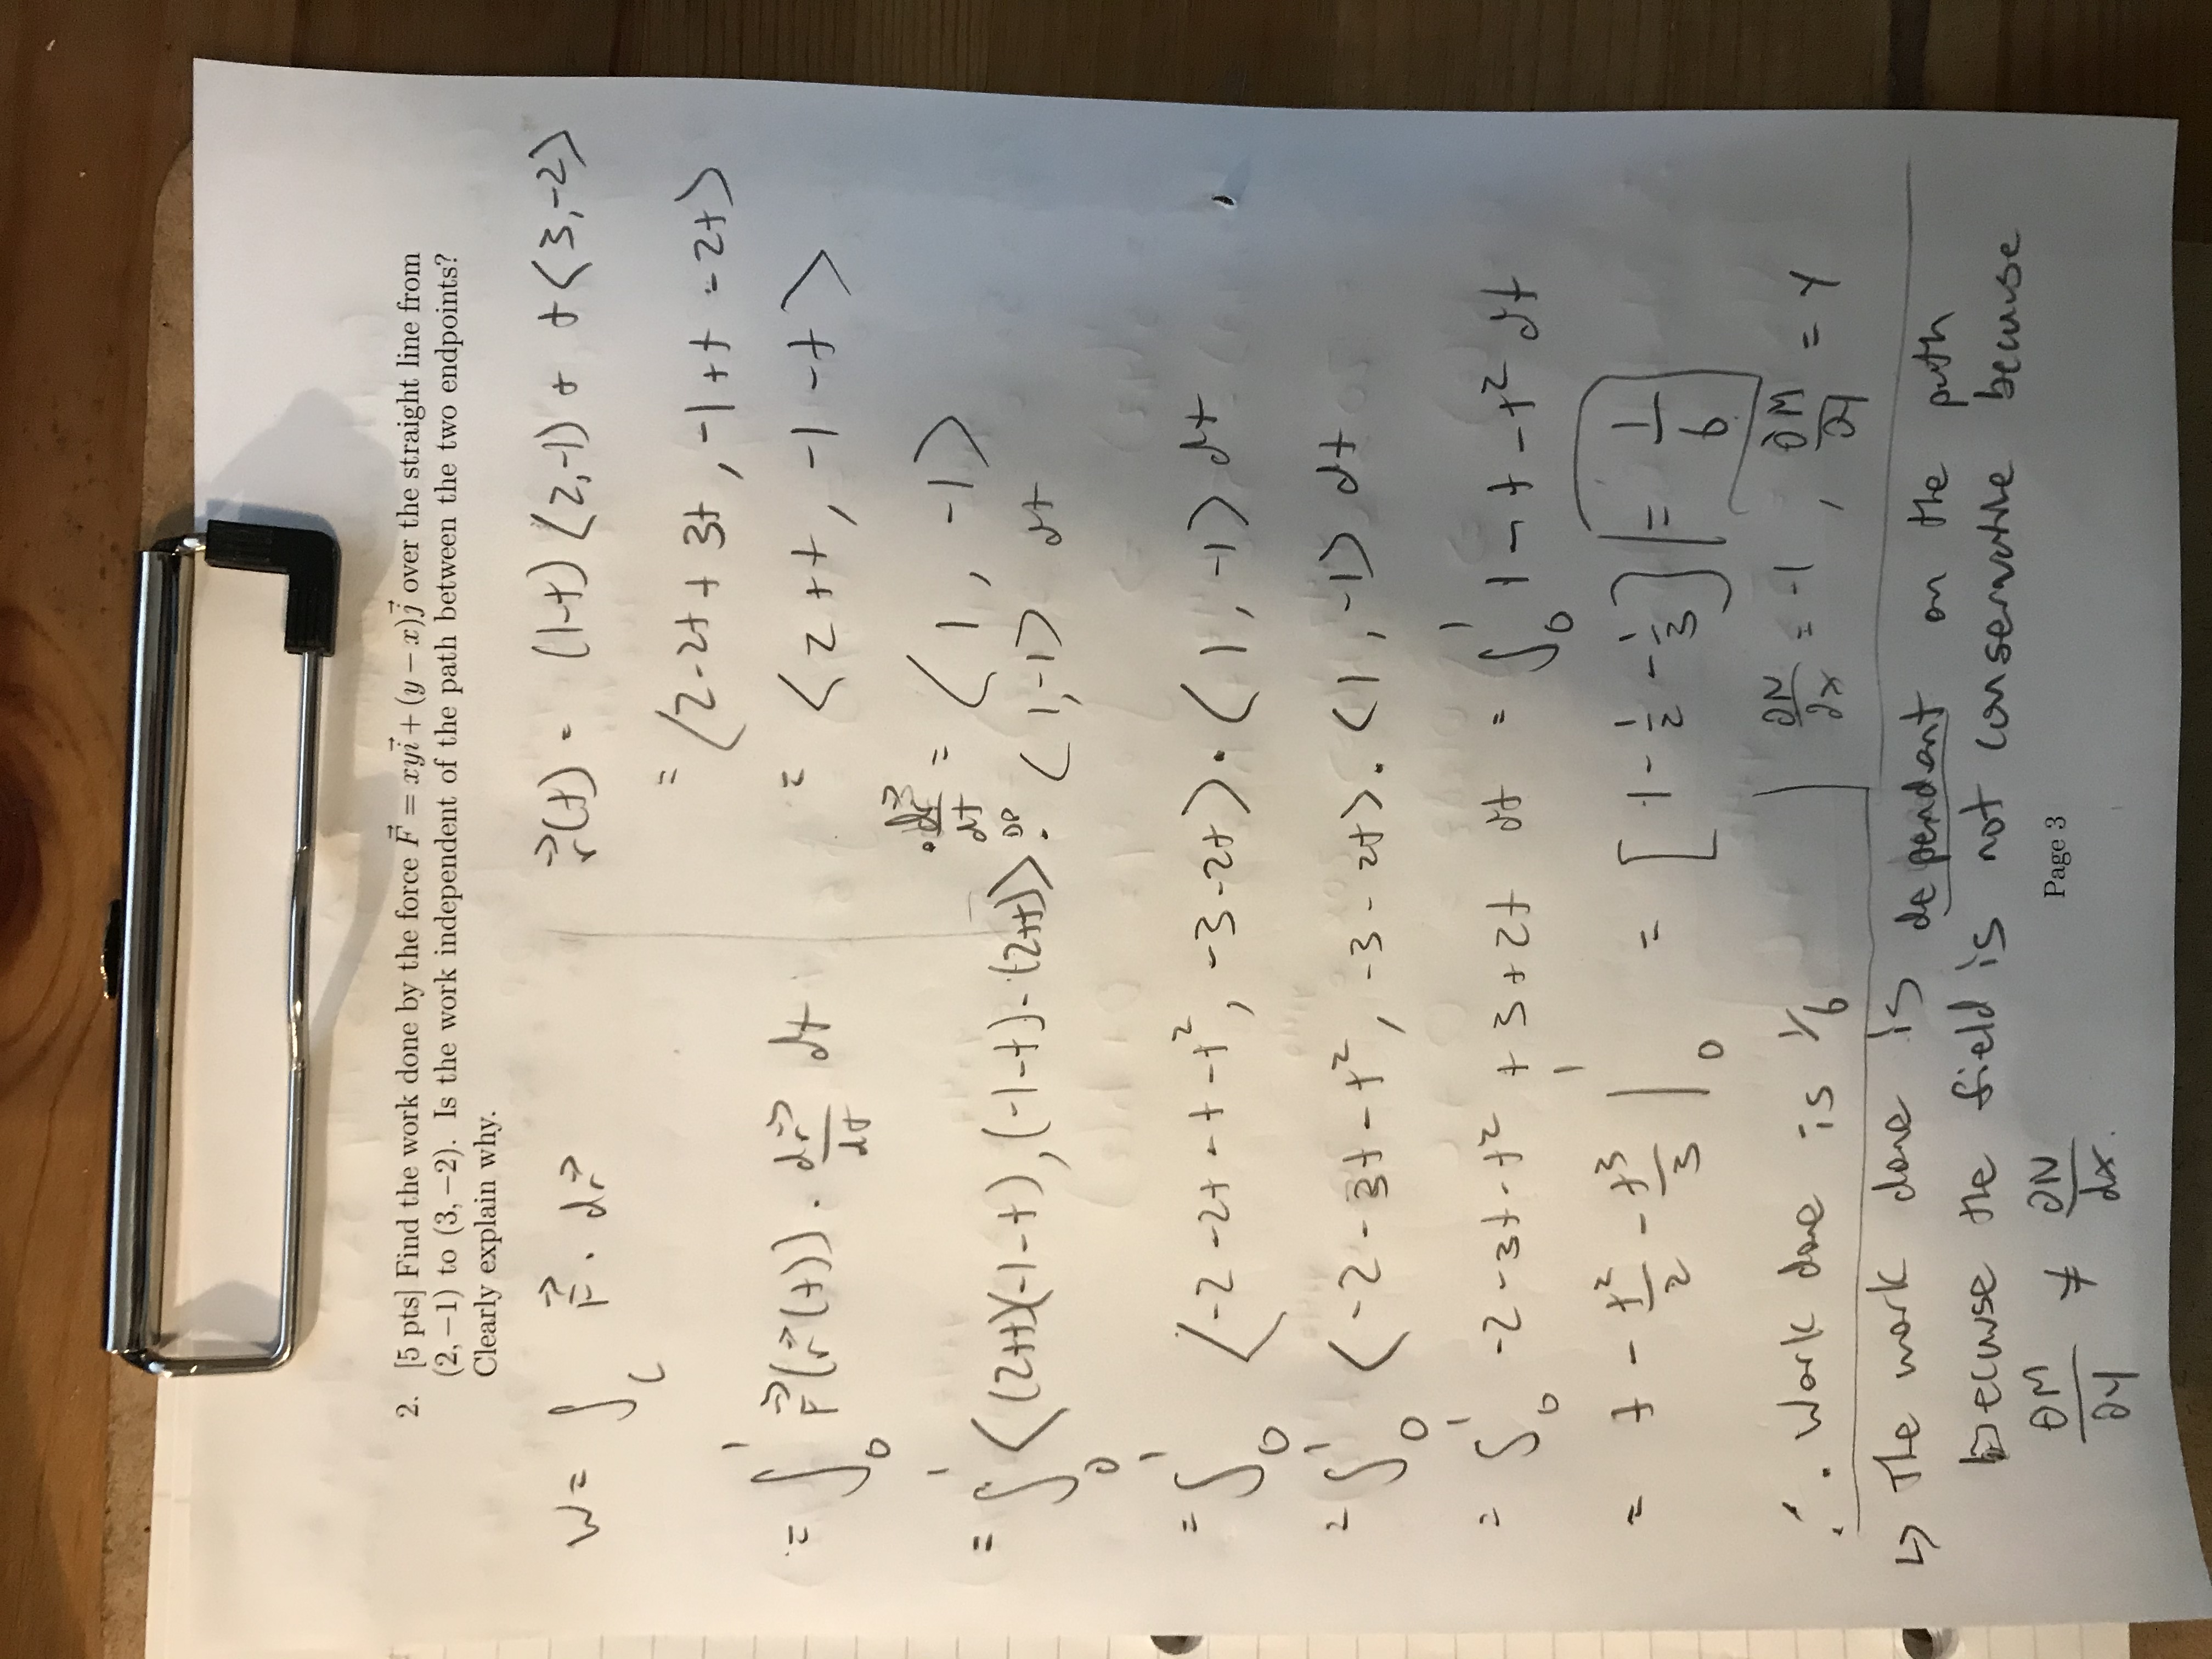 2. [5 pts] Find the work done by the force F⃗ = xyi⃗ + (y − x)j⃗ over the straight line from
(2, −1) to (3, −2). Is the work independent of the path between the two endpoints?
Clearly explain why.
W = ∫_C F⃗ · dr⃗
r⃗(t) = (1-t)⟨2,-1⟩ + t⟨3,-2⟩
= ⟨2-2t+3t, -1+t-2t⟩
= ∫_0^1 F⃗(r⃗(t)) · dr⃗/dt dt
= ⟨2+t, -1-t⟩
· dr⃗/dt = ⟨1, -1⟩
= ∫_0^1 ⟨(2+t)(-1-t), (-1-t)-(2+t)⟩ DP · ⟨1,-1⟩ dt
= ∫_0^1 ⟨-2-2t-t-t², -3-2t⟩ · ⟨1, -1⟩ dt
= ∫_0^1 ⟨-2-3t-t², -3-2t⟩ · ⟨1, -1⟩ dt
= ∫_0^1 -2-3t-t²+3+2t dt = ∫_0^1 1-t-t² dt
= t - t²/2 - t³/3 |_0^1 = [1 - 1/2 - 1/3] = 1/6
∴ Work done is 1/6
∂N/∂x = -1, ∂M/∂y = y
↳ The work done is dependent on the path
because the field is not conservative because
∂M/∂y ≠ ∂N/dx.
Page 3